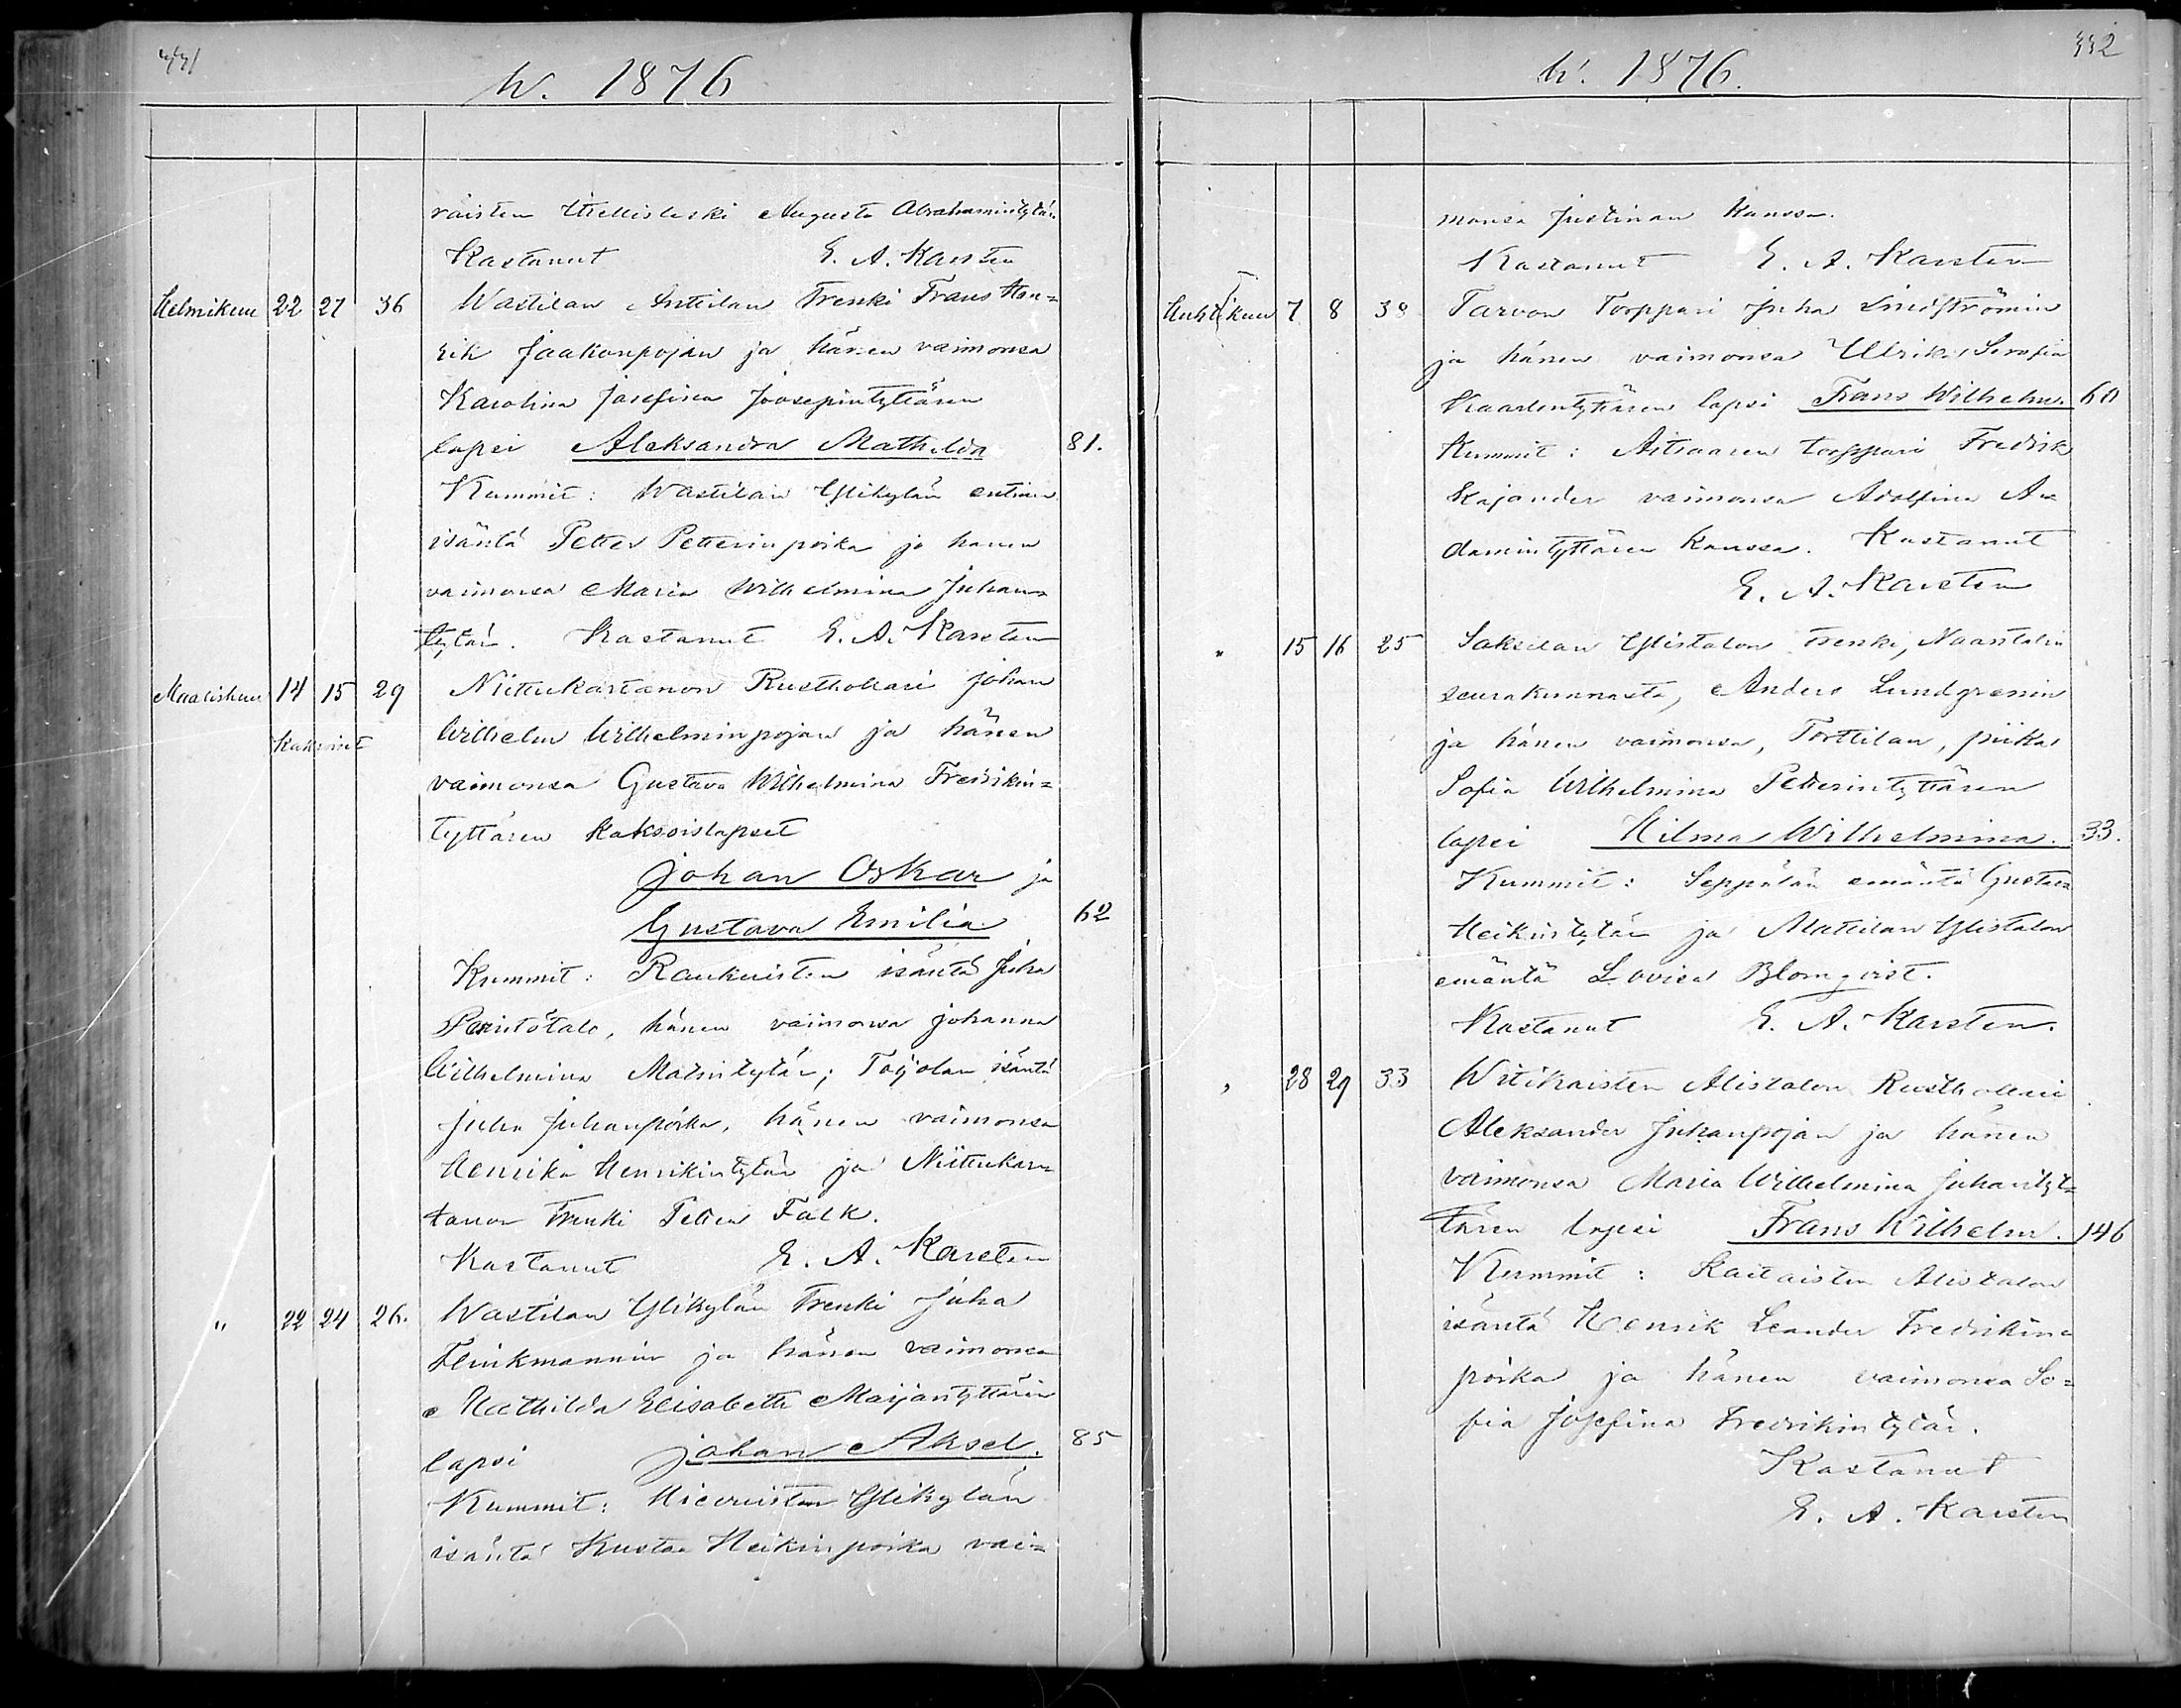 w. 1876
Augusta Abrahamintytär
Kastanut E. A. Karsten
Helmikuu 22 27 36 Wastilan Anttilan Trenki Frans Hen=
rik Jaakonpojan ja hänen vaimonsa
Karolina Josefina Joosepintyttären
lapsi Aleksandra Mathilda 81.
Kummit: Wastilan Ylikylän entinen
isäntä Petter Petterinpoika ja hänen
vaimonsa Maria Wilhelmina Juhan=
tytär. Kastanut E. A. Karsten
Maaliskuu 14 15 29 Niittukartanon Rusthollari Johan
Kaksoiset Wilhelm Wilhelminpojan ja hänen
vaimonsa Gustava Wilhelmina Fredrikin=
tyttären kaksoislapset
Johan Oskar ja
Gustava Emilia 62
Kummit: isäntä Juha
hänen vaimonsa Johanna
Wilhelmina Matintytär; isäntä
Juha Juhanpoika, hänen vaimonsa
Henrika Henrikintytär ja Niittukar=
tanon Trenki Petter Falk.
Kastanut E. A. Karsten
" 22 24 26. Wastilan Ylikylän Trenki Juha
Flinkmannin ja hänen vaimonsa
Mathilda Elisabeth Maijantyttären
lapsi Johan Aksel. 85
Kummit: Ylikylän
isäntä Kustaa Heikinpoika vai=
332
w. 1876.
monsa Justinan kanssa.
Kastanut E. A. Karsten
Huhtikuu 7 8 38 Tarvon Torppari Juha Lindströmin
ja hänen vaimonsa Ulrika Serafia
Kaarlentyttären lapsi Frans Wilhelm. 60
Kummit: torppari Fredrik
Kajander vaimonsa Adolfina A=
damintyttären kanssa. Kastanut
E. A. Karsten
" 15 16 25 Saksilan Ylistalon trenki, Naantalin
seurakunnasta, Anders Lundgrenin
ja hänen vaimonsa, Torttilan, piika
Sofia Wilhelmina Petterintyttären
lapsi Hilma Wilhelmina. 33.
Kummit: Seppälän emäntä Gustava
Heikintytär ja Mattilan Ylistalon
emäntä Lovisa Blomqvist.
Kastanut E. A. Karsten.
" 28 29 33 Witikaisten Alistalon Rusthollari
Aleksander Juhanpojan ja hänen
vaimonsa Maria Wilhelmina Juhantyt=
tären lapsi Frans Wilhelm. 146
Kummit: Kaitaisten Alistalon
isäntä Henrik Leander Fredrikin=
poika ja hänen vaimonsa So=
fia Josefina Fredrikintytär.
Kastanut
E. A. Karsten